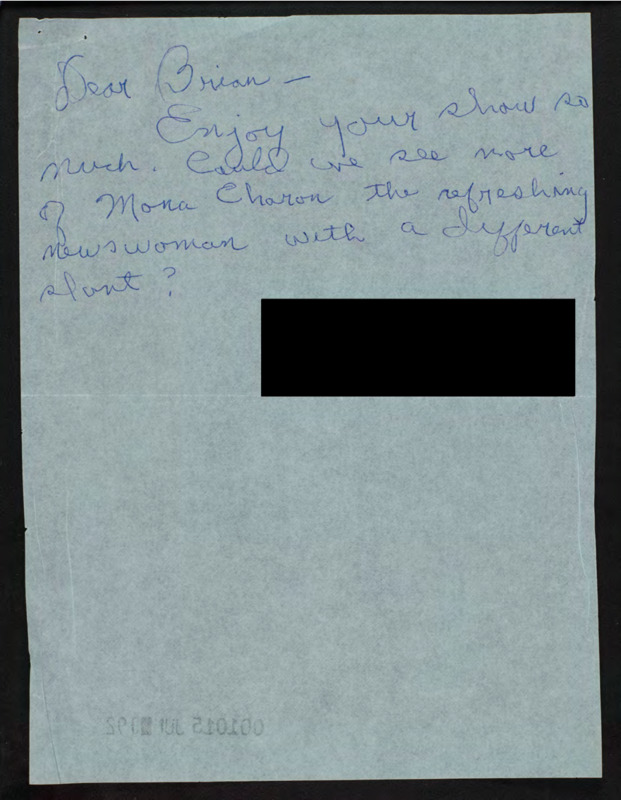 Dear Brian —
Enjoy your show so
much. Could we see more
of Mona Charon the refreshing
newswoman with a different
slant?
001015 JUL 92